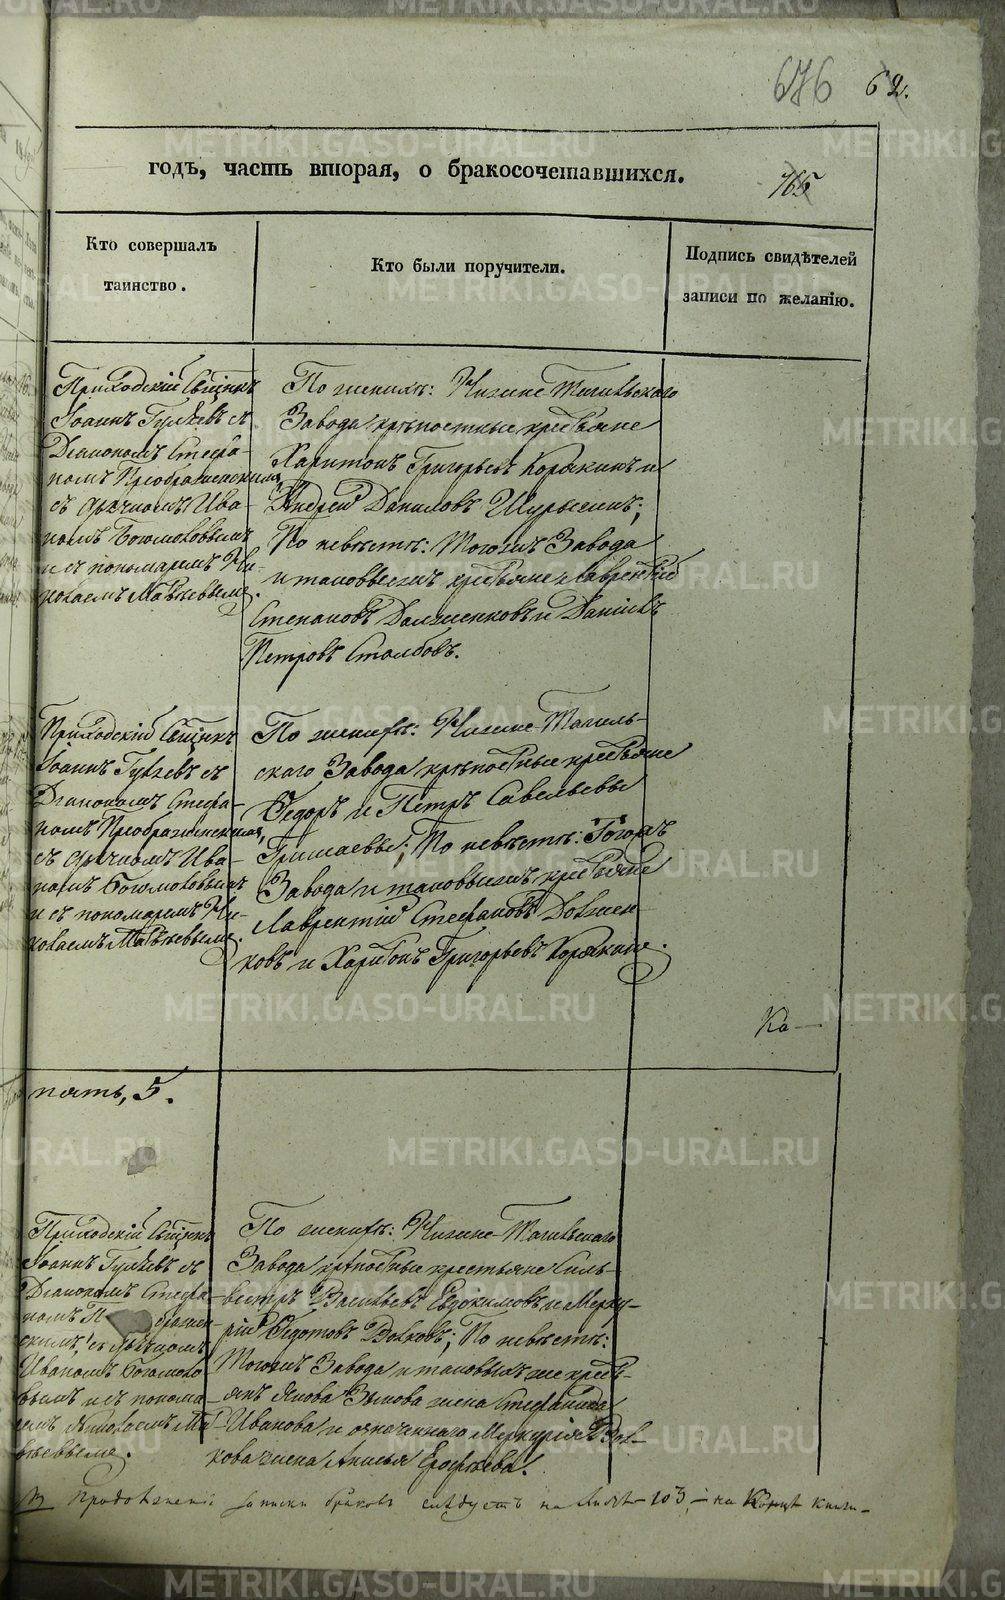 676 62.
годъ, часть вторая, о бракосочетавшихся.
765
Кто совершалъ
таинство.
Кто были поручители.
Подпись свидѣтелей
записи по желанію.
Приходскій Свщнкъ
Іоаннъ Гуляевъ съ
Діакономъ Стефа-
номъ Преображенскимъ,
съ дьячкомъ Ива-
номъ Богомоловымъ
и съ пономаремъ Ни-
колаемъ Матвѣевымъ.
По женихѣ: Нижне Тагильскаго
Завода крѣпостные крестьяне
Харитонъ Григорьевъ Корякинъ и
Андрей Даниловъ
По невѣстѣ: Тогожъ Завода
и таковыежъ крестьяне Лаврентій
Степановъ Долженковъ и Даніилъ
Петровъ Столбовъ.
Приходскій Свщнкъ
Іоаннъ Гуляевъ съ
Діакономъ Стефа-
номъ Преображенскимъ,
съ дьячкомъ Ива-
номъ Богомоловымъ
и съ пономаремъ Ни-
колаемъ Матвѣевымъ.
По женихѣ: Нижне-Тагиль-
скаго Завода крѣпостные крестьяне
Ѳедоръ и Петръ Савельевы
По невѣстѣ: Тогожъ
Завода и таковыежъ крестьяне
Лаврентій Стефановъ Должен-
ковъ и Харитонъ Григорьевъ Корякинъ.
Ко-
пять, 5.
Приходскій Свщнкъ
Іоаннъ Гуляевъ съ
Діакономъ Стефа-
номъ П ражен-
скимъ, съ дьячкомъ
Иваномъ Богомоло-
вымъ и съ понома-
ремъ Николаемъ Мат-
вѣевымъ.
По женихѣ: Нижне-Тагильскаго
Завода крѣпостные крестьяне Силь-
вестръ Васильевъ Евдокимовъ и Мерку-
рій Ѳедотовъ Волковъ; По невѣстѣ:
Тогожъ Завода и таковыхъ же кресть-
янъ Якова Зыкова жена Стефанида
Иванова и означеннаго Меркурія Вол-
кова жена Анисья Ерофѣева.
Продолженіе записки браковъ слѣдуетъ на листѣ 103, - на концѣ книги
METRIKI.GASO-URAL.RU